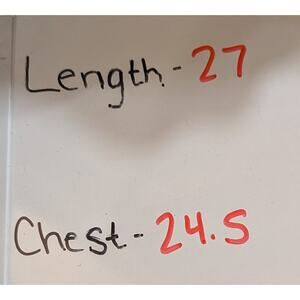 Length - 27
Chest - 24.5